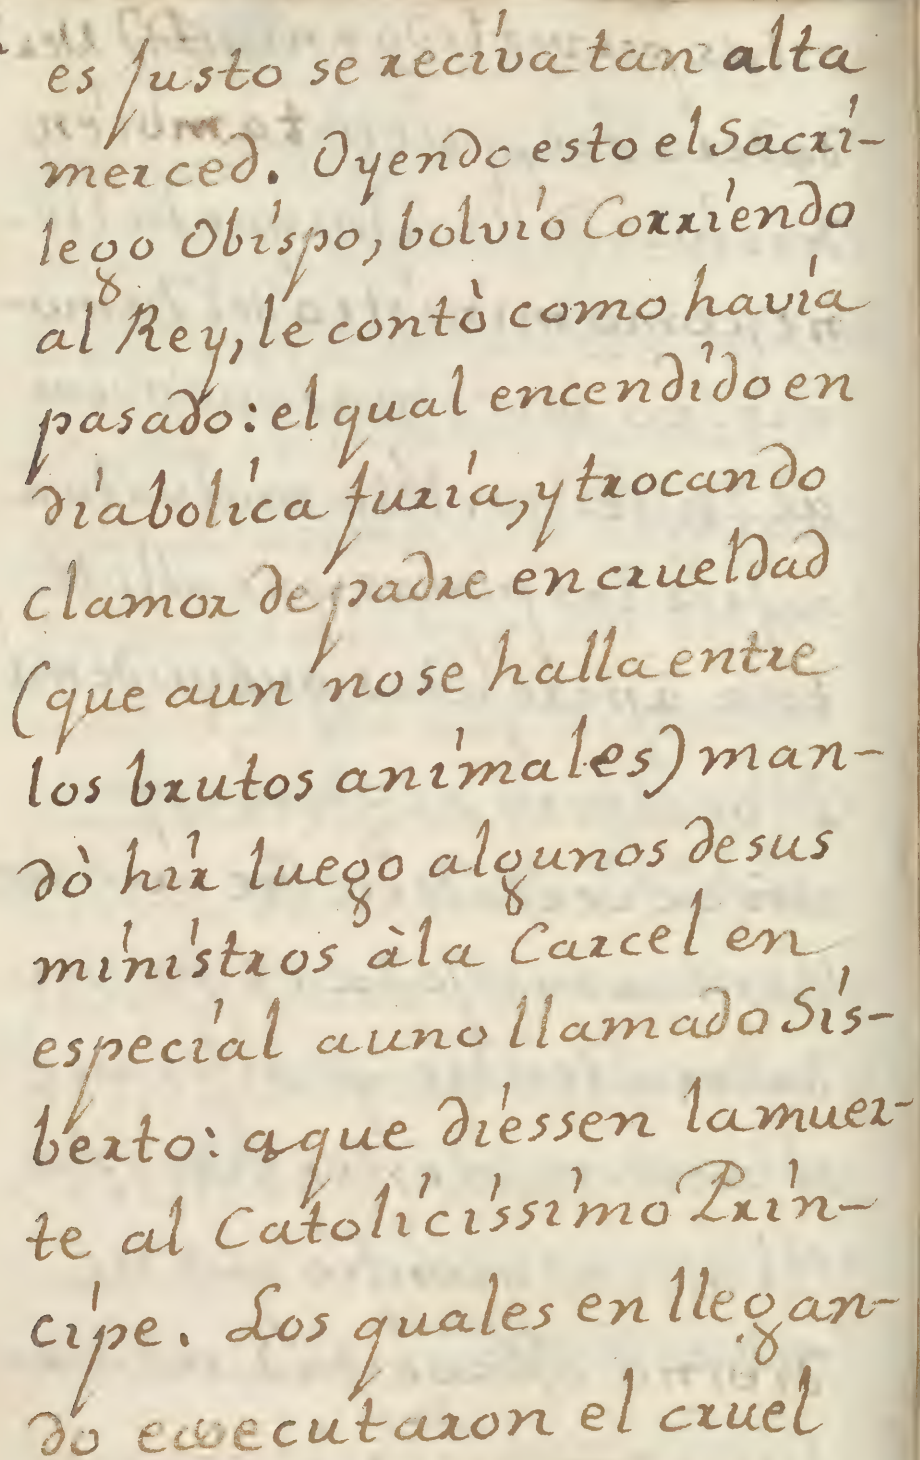 es justo se reciva tan alta
merced. Oyendo esto el Sacri-
lego Obispo, bolvio Corriendo
al Rey, le contò como havia
pasado: el qual encendido en
diabolica furia, y trocando
clamor de padre en crueldad
(que aun no se halla entre
los brutos animales) man-
dò hir luego algunos de sus
ministros àla Carcel en
especial auno llamado Sis-
berto: aque diessen lamuer-
te al Catolicissimo Prin-
cipe. Los quales en llegan-
do executaron el cruel